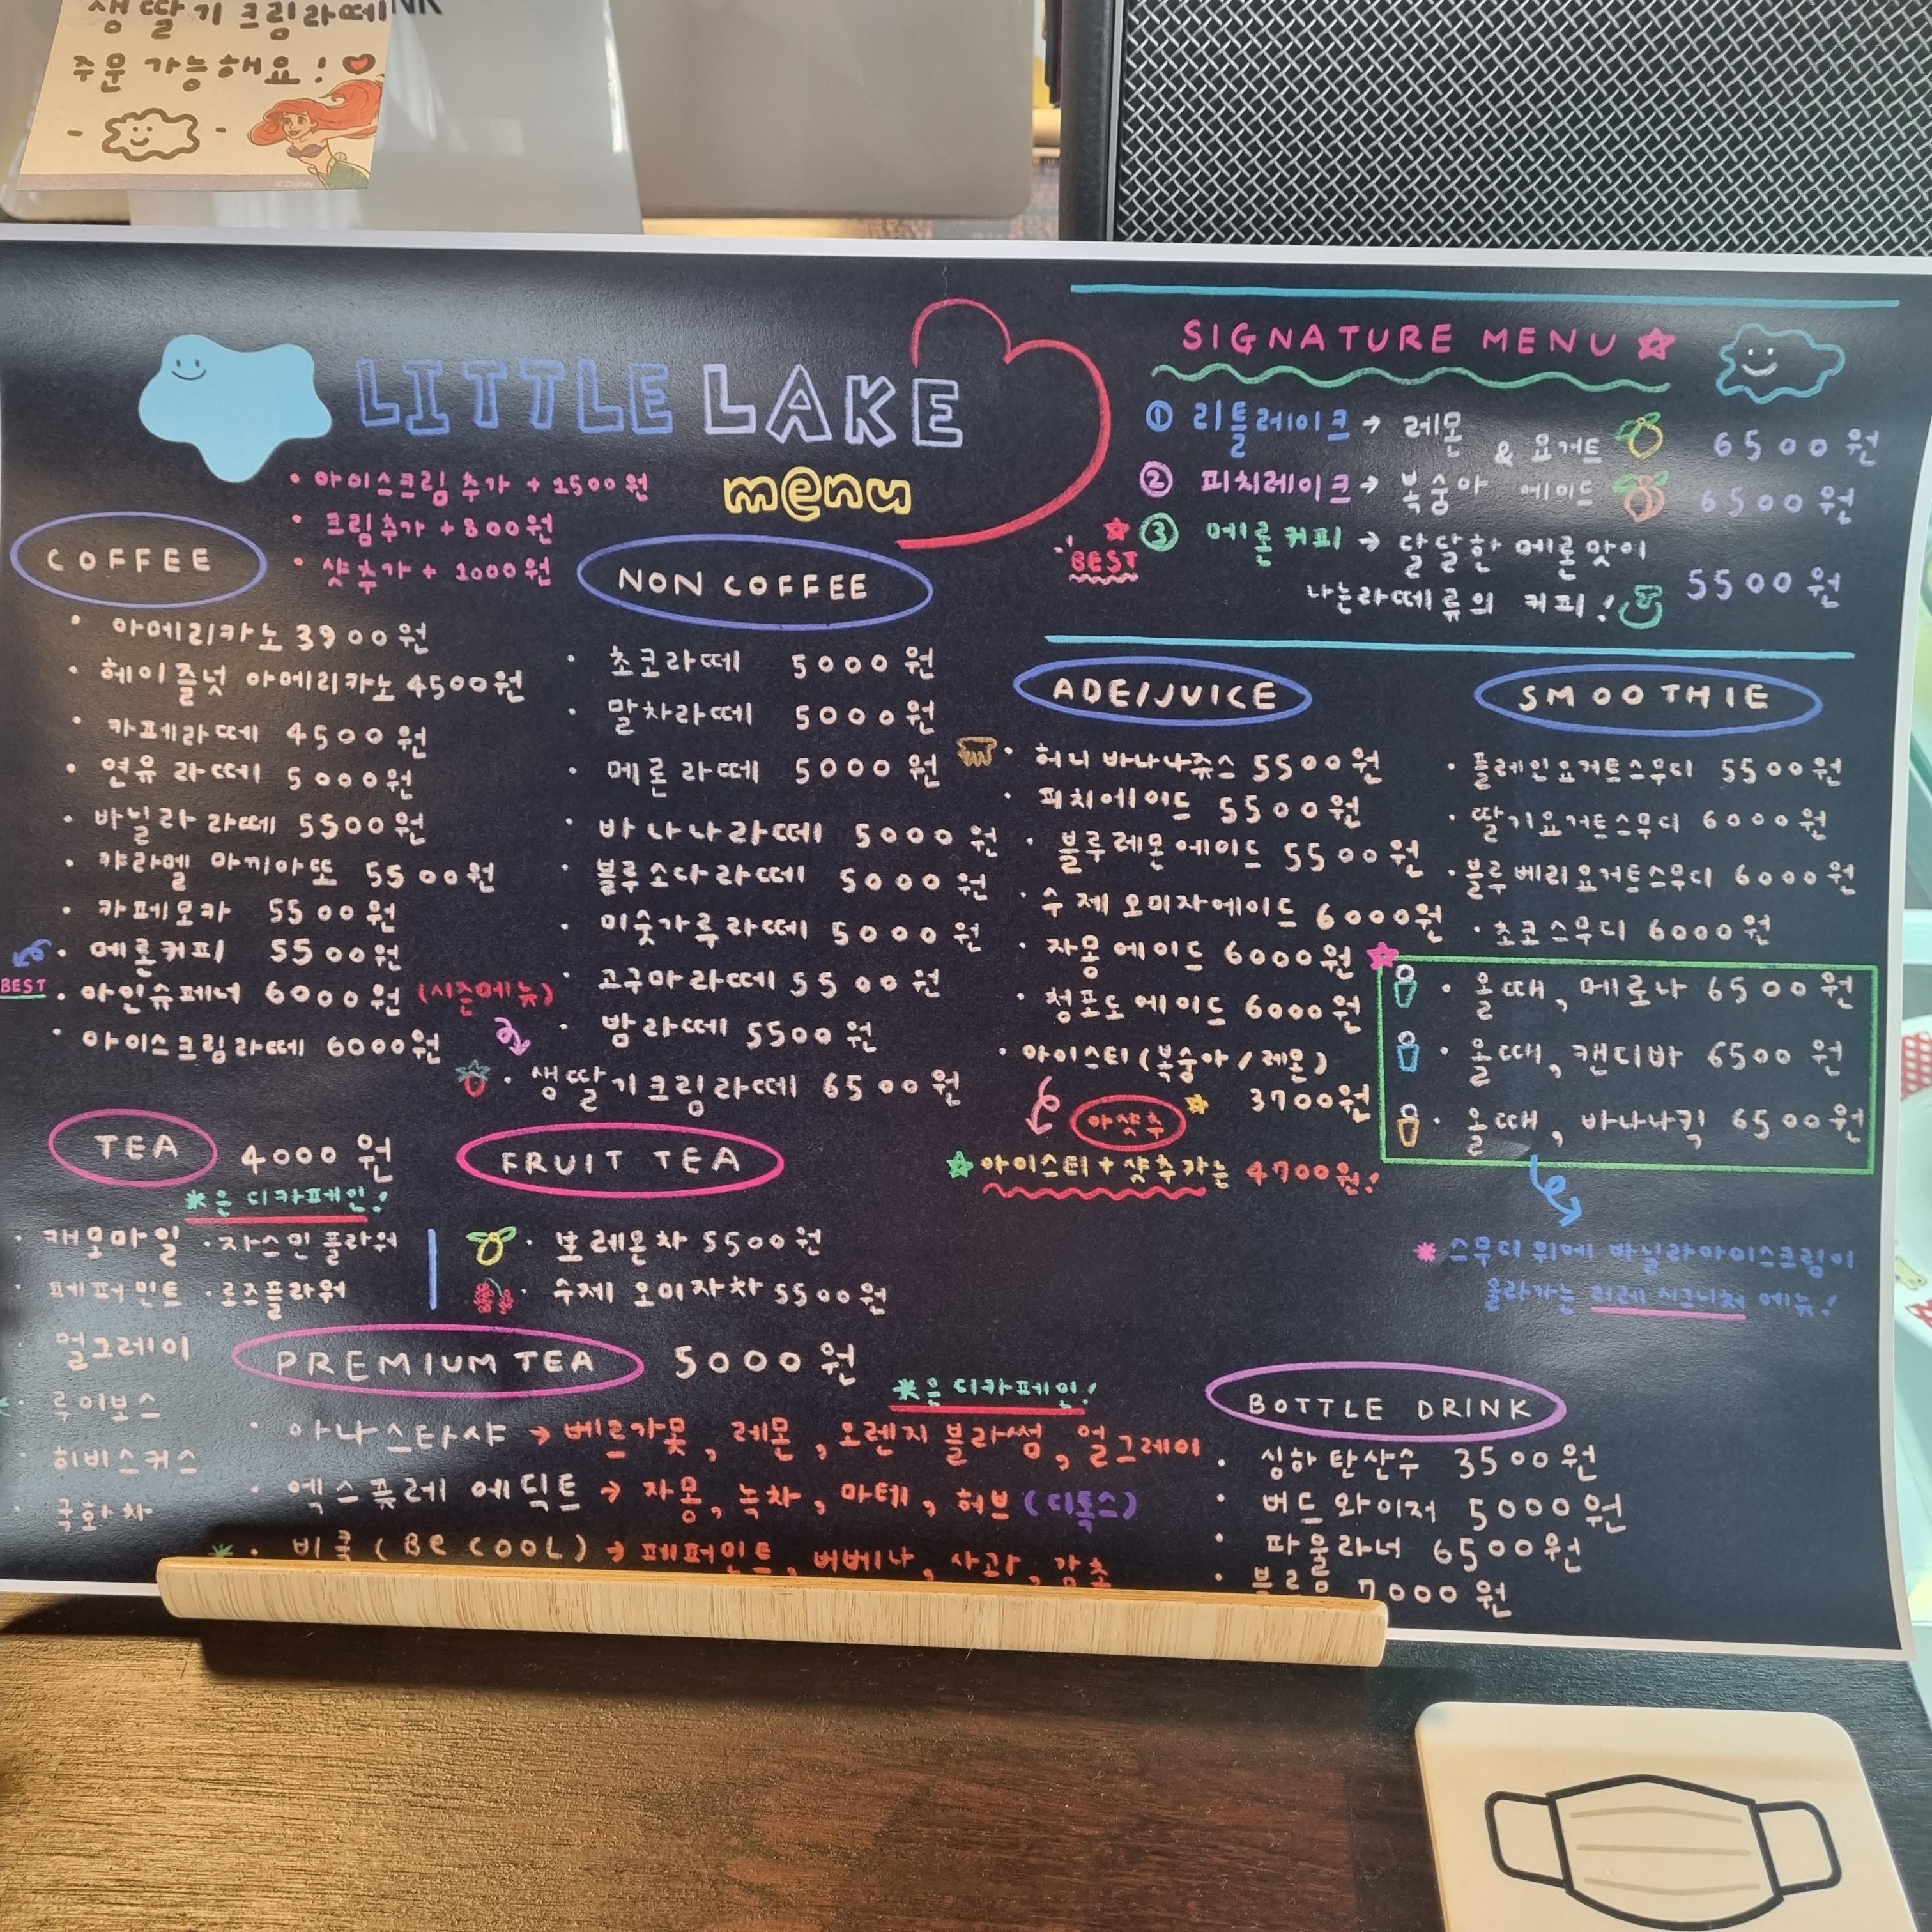 생딸기크림라떼
NK
주문 가능해요!
© Disney
LITTLE LAKE
menu
• 아이스크림 추가 + 1500원
• 크림추가 + 800원
• 샷추가 + 1000원
SIGNATURE MENU
① 리틀레이크 → 레몬 & 요거트 6500원
② 피치레이크 → 복숭아 에이드 6500원
BEST ③ 메론커피 → 달달한 메론맛이
나는라떼류의 커피! 5500원
COFFEE
• 아메리카노 3900원
• 헤이즐넛 아메리카노 4500원
• 카페라떼 4500원
• 연유라떼 5000원
• 바닐라 라떼 5500원
• 캬라멜 마끼아또 5500원
• 카페모카 5500원
• 메론커피 5500원
BEST
• 아인슈페너 6000원
• 아이스크림라떼 6000원
NON COFFEE
• 초코라떼 5000원
• 말차라떼 5000원
• 메론라떼 5000원
• 바나나라떼 5000원
• 블루소다라떼 5000원
• 미숫가루라떼 5000원
• 고구마라떼 5500원
• 밤라떼 5500원
(시즌메뉴)
• 생딸기크림라떼 6500원
ADE/JUICE
• 허니 바나나쥬스 5500원
• 피치에이드 5500원
• 블루레몬에이드 5500원
• 수제 오미자에이드 6000원
• 자몽에이드 6000원
• 청포도에이드 6000원
• 아이스티(복숭아/레몬)
3700원
아샷추
아이스티+샷추가는 4700원!
SMOOTHIE
• 플레인요거트스무디 5500원
• 딸기요거트스무디 6000원
• 블루베리요거트스무디 6000원
• 초코스무디 6000원
• 올때, 메로나 6500원
• 올때, 캔디바 6500원
• 올때, 바나나킥 6500원
* 스무디 위에 바닐라아이스크림이
올라가는 리레 시그니처 메뉴!
TEA 4000원
*은 디카페인!
• 캐모마일 • 자스민플라워
• 페퍼민트 • 로즈플라워
• 얼그레이
• 루이보스
• 히비스커스
• 국화차
FRUIT TEA
• 레몬차 5500원
• 수제 오미자차 5500원
PREMIUM TEA 5000원
*은 디카페인!
• 아나스타샤 → 베르가못, 레몬, 오렌지 블라썸, 얼그레이
• 엑스퓨레 에딕트 → 자몽, 녹차, 마테, 허브 (디톡스)
* • 비쿨 (BE COOL) → 페퍼민트, 버베나, 사과, 감초
BOTTLE DRINK
• 싱하탄산수 3500원
• 버드와이저 5000원
• 파울라너 6500원
• 7000원